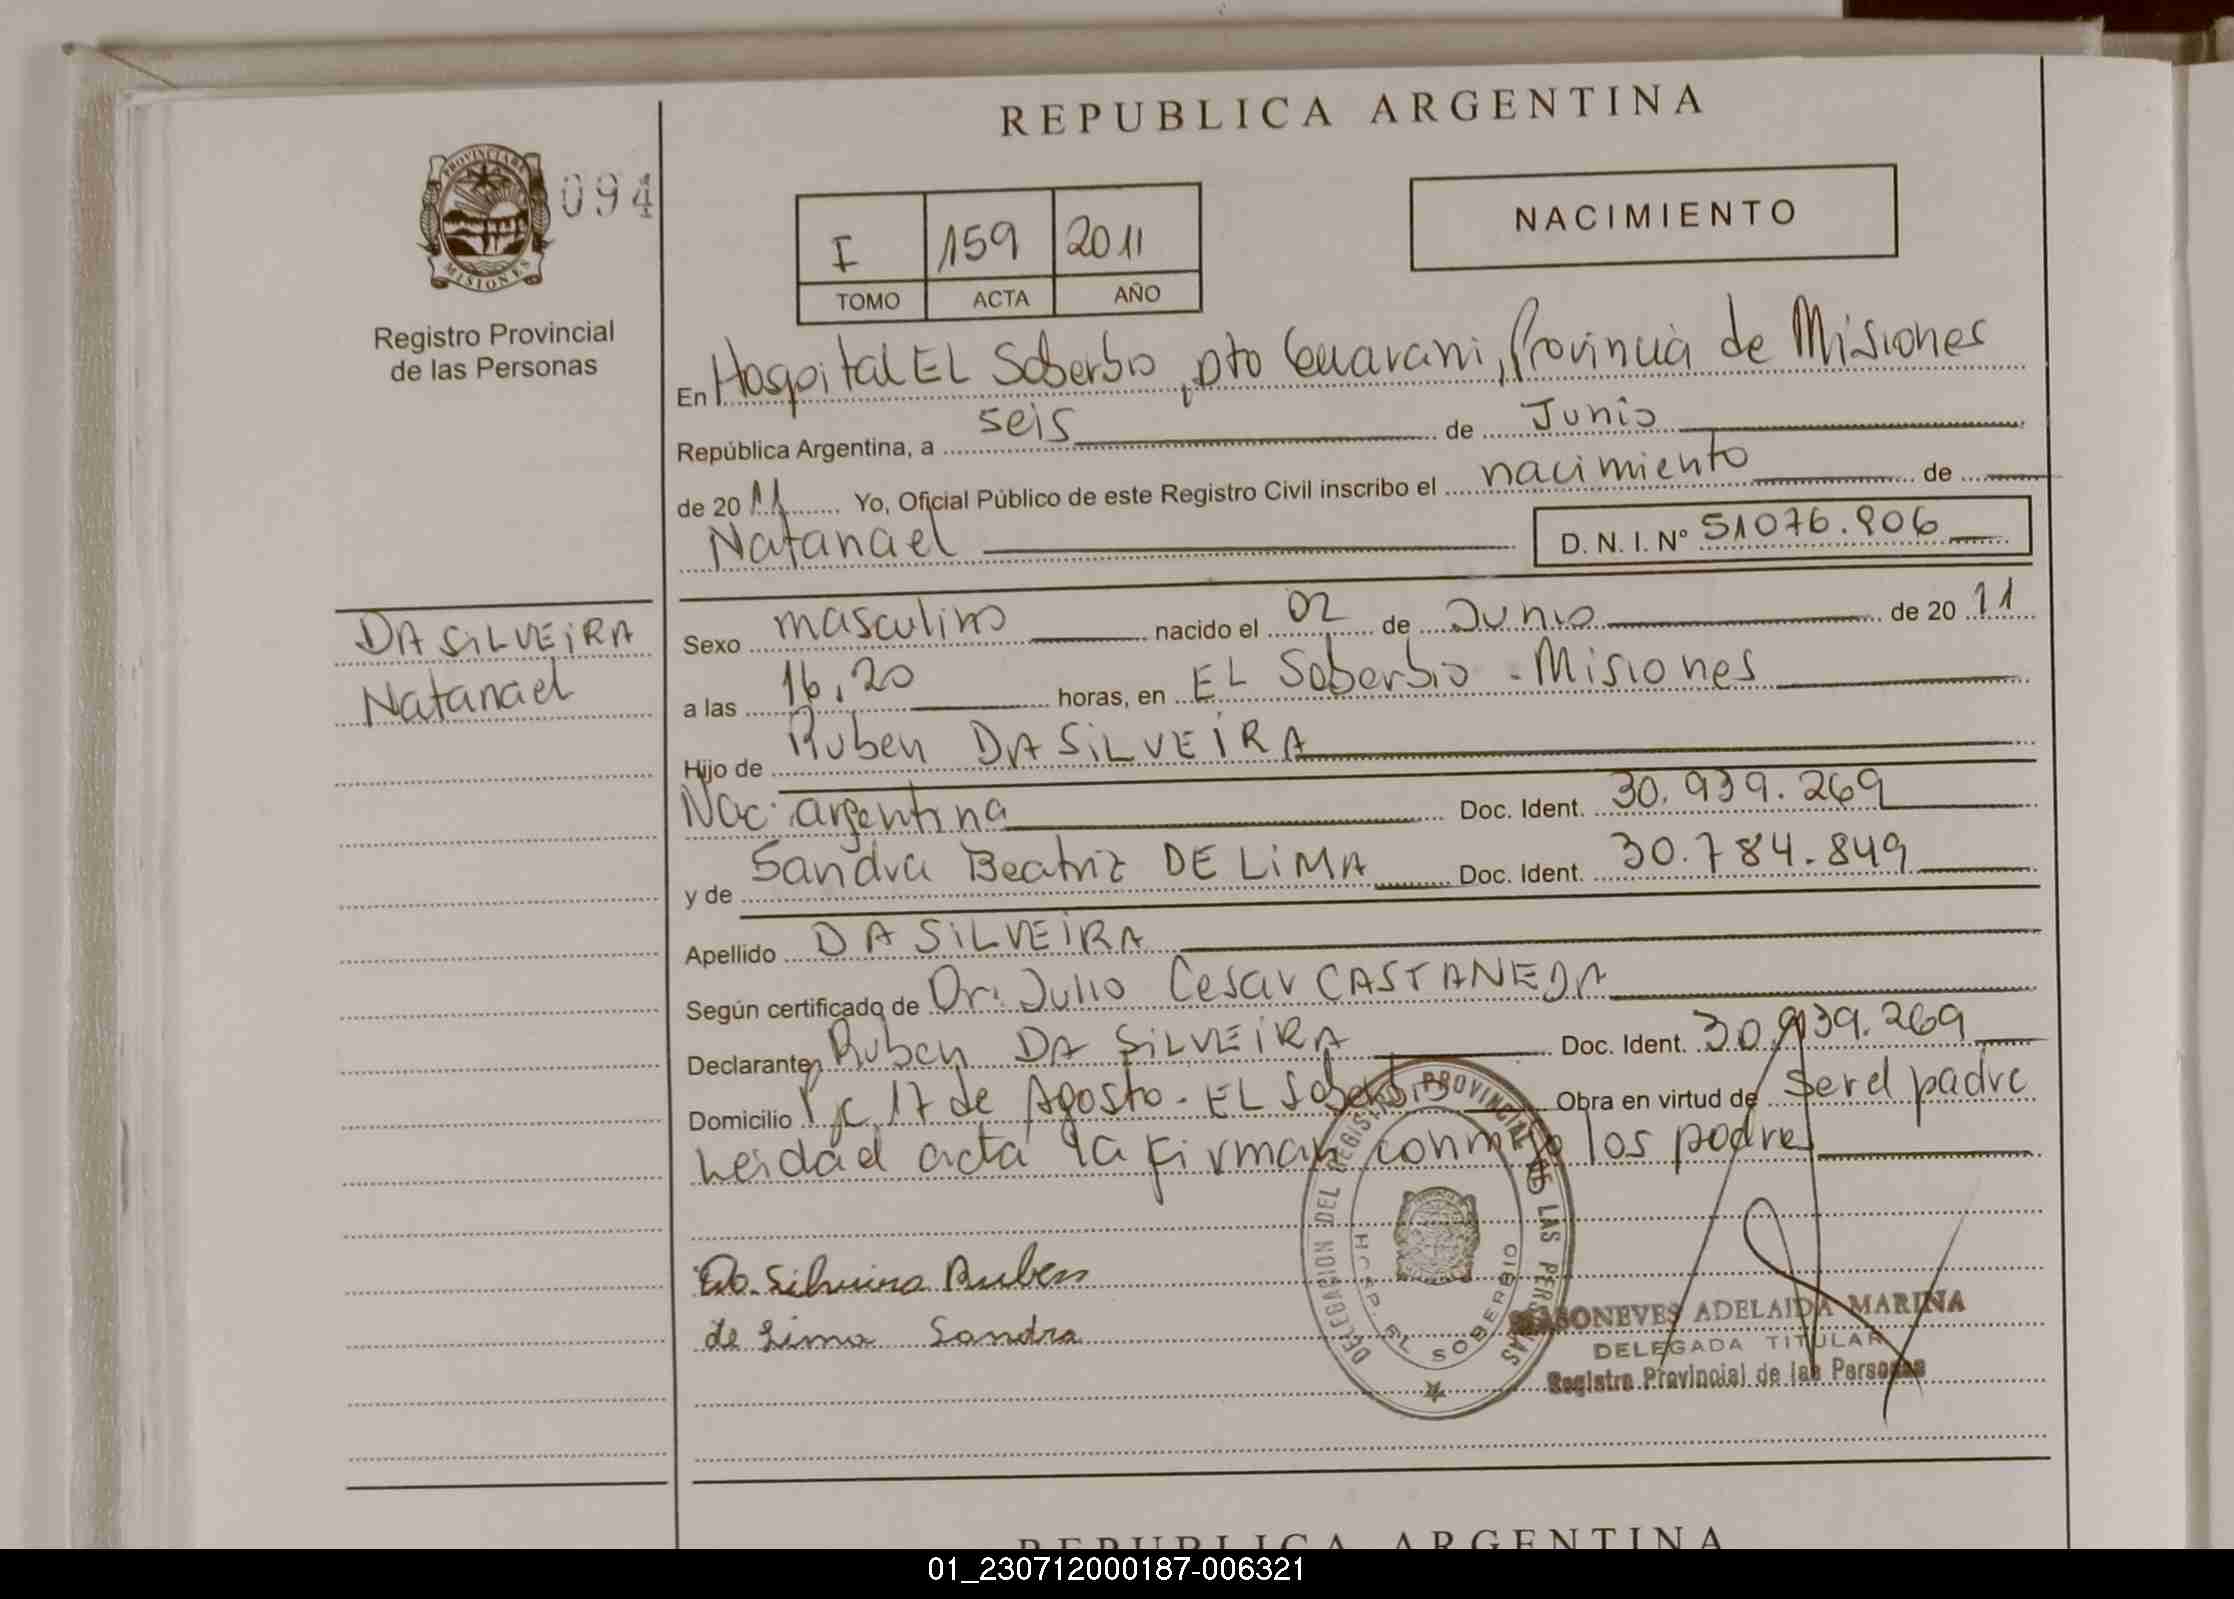 REPUBLICA ARGENTINA
PROVINCIA DE MISIONES
094
Registro Provincial
de las Personas
I 159 2011
TOMO ACTA AÑO
NACIMIENTO
En Hospital EL Soberbio, pto Guarani, Provincia de Misiones
República Argentina, a seis de Junio
de 2011 Yo, Oficial Público de este Registro Civil inscribo el nacimiento de
Natanael D. N. I. Nº 51076.906
DA SILVEIRA
Natanael
Sexo masculino nacido el 02 de Junio de 2011
a las 16,20 horas, en EL Soberbio - Misiones
Hijo de Ruben DA SILVEIRA
Nac. argentina Doc. Ident. 30.939.269
y de Sandra Beatriz DE LIMA Doc. Ident. 30.784.849
Apellido DA SILVEIRA
Según certificado de Dr. Julio Cesar CASTANEDA
Declarante Ruben DA SILVEIRA Doc. Ident. 30.939.269
Domicilio 17 de Agosto - EL Soberbio Obra en virtud de ser el padre
Leida el acta la firman conmigo los padres
Da Silveira Ruben
de Lima Sandra
DELEGACION DEL REGISTRO PROVINCIAL DE LAS PERSONAS
HOSP. EL SOBERBIO
ADELAIDA MARINA
DELEGADA TITULAR
Registro Provincial de las Personas
REPUBLICA ARGENTINA
01_230712000187-006321